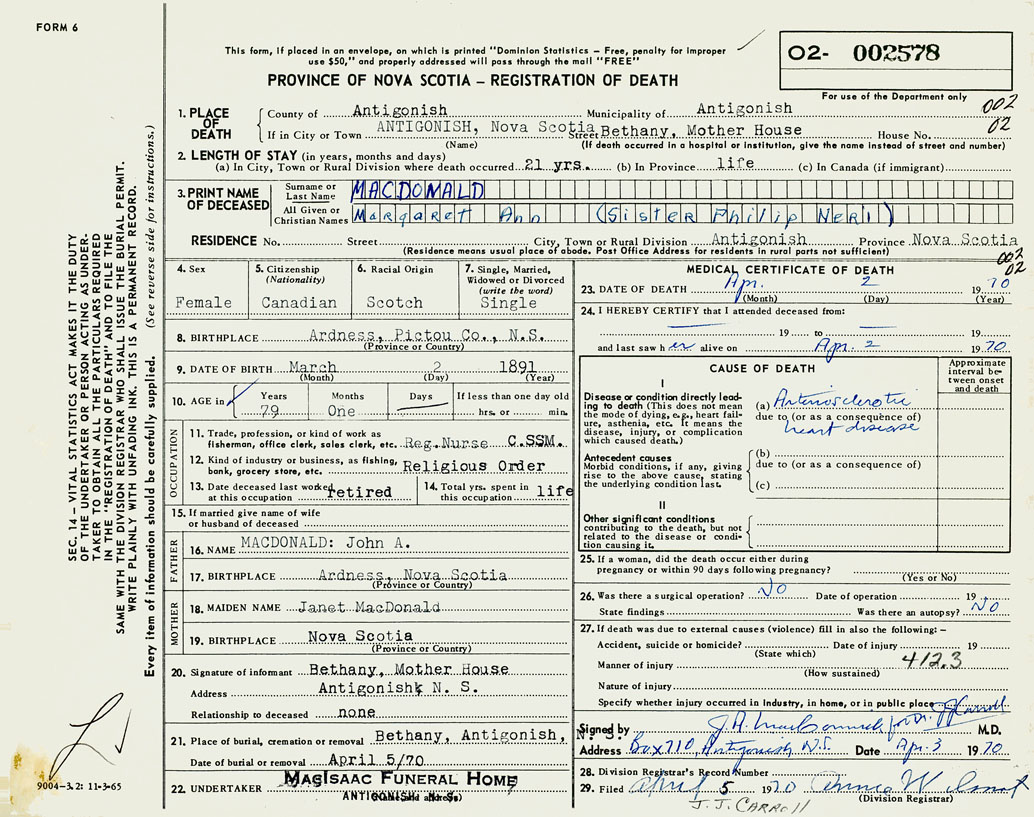 FORM 6
This form, if placed in an envelope, on which is printed "Dominion Statistics – Free, penalty for improper
use $50," and properly addressed will pass through the mail "FREE"
PROVINCE OF NOVA SCOTIA – REGISTRATION OF DEATH
O2- 002578
For use of the Department only
002
02
1. PLACE OF DEATH
County of Antigonish Municipality of Antigonish
If in City or Town ANTIGONISH, Nova Scotia Street Bethany, Mother House House No.
(Name) (If death occurred in a hospital or institution, give the name instead of street and number)
2. LENGTH OF STAY (in years, months and days)
(a) In City, Town or Rural Division where death occurred 21 yrs. (b) In Province life (c) In Canada (if immigrant)
3. PRINT NAME OF DECEASED
Surname or Last Name MACDONALD
All Given or Christian Names Margaret Ann (Sister Philip Neri)
RESIDENCE No. Street City, Town or Rural Division Antigonish Province Nova Scotia
(Residence means usual place of abode. Post Office Address for residents in rural parts not sufficient)
002
02
4. Sex
Female
5. Citizenship
(Nationality)
Canadian
6. Racial Origin
Scotch
7. Single, Married,
Widowed or Divorced
(write the word)
Single
8. BIRTHPLACE Ardness, Pictou Co., N.S.
(Province or Country)
9. DATE OF BIRTH March 2 1891
(Month) (Day) (Year)
10. AGE in
Years Months Days If less than one day old
79 One hrs. or min.
OCCUPATION
11. Trade, profession, or kind of work as
fisherman, office clerk, sales clerk, etc. Reg.Nurse C.SSM.
12. Kind of industry or business, as fishing,
bank, grocery store, etc. Religious Order
13. Date deceased last worked
at this occupation retired
14. Total yrs. spent in
this occupation life
15. If married give name of wife
or husband of deceased
FATHER
16. NAME MACDONALD: John A.
17. BIRTHPLACE Ardness, Nova Scotia
(Province or Country)
MOTHER
18. MAIDEN NAME Janet MacDonald
19. BIRTHPLACE Nova Scotia
(Province or Country)
20. Signature of informant Bethany, Mother House
Address Antigonish N. S.
Relationship to deceased none
21. Place of burial, cremation or removal Bethany, Antigonish,
Date of burial or removal April 5/70
22. UNDERTAKER MacIsaac Funeral Home
ANTIGONISH, N.S.
MEDICAL CERTIFICATE OF DEATH
23. DATE OF DEATH Apr. 2 1970
(Month) (Day) (Year)
24. I HEREBY CERTIFY that I attended deceased from:
19 to 19
and last saw her alive on Apr. 2 1970
CAUSE OF DEATH
Approximate
interval be-
tween onset
and death
I
Disease or condition directly lead-
ing to death (This does not
mean the mode of dying, e.g., heart fail-
ure, asthenia, etc. It means the
disease, injury, or complication
which caused death.)
(a) Arteriosclerotic
due to (or as a consequence of)
heart disease
Antecedent causes
Morbid conditions, if any, giving
rise to the above cause, stating
the underlying condition last.
(b)
due to (or as a consequence of)
(c)
II
Other significant conditions
contributing to the death, but not
related to the disease or condi-
tion causing it.
25. If a woman, did the death occur either during
pregnancy or within 90 days following pregnancy?
(Yes or No)
26. Was there a surgical operation? NO Date of operation 19
State findings Was there an autopsy? NO
27. If death was due to external causes (violence) fill in also the following: –
Accident, suicide or homicide? Date of injury 19
(State which)
412.3
Manner of injury
(How sustained)
Nature of injury
Specify whether injury occurred in Industry, in home, or in public place
Signed by J.A. MacCormick for Dr. JJ Carroll M.D.
Address Box 710, Antigonish N.S. Date Apr. 3 1970
28. Division Registrar's Record Number
29. Filed April 5 1970
(Division Registrar)
J.J. CARROLL
SEC. 14 – VITAL STATISTICS ACT MAKES IT THE DUTY
OF THE UNDERTAKER OR PERSON ACTING AS UNDER-
TAKER TO OBTAIN ALL THE PARTICULARS REQUIRED
IN THE "REGISTRATION OF DEATH" AND TO FILE THE
SAME WITH THE DIVISION REGISTRAR WHO SHALL ISSUE THE BURIAL PERMIT.
WRITE PLAINLY WITH UNFADING INK. THIS IS A PERMANENT RECORD.
Every item of information should be carefully supplied. (See reverse side for instructions.)
9004-3.2: 11-3-65